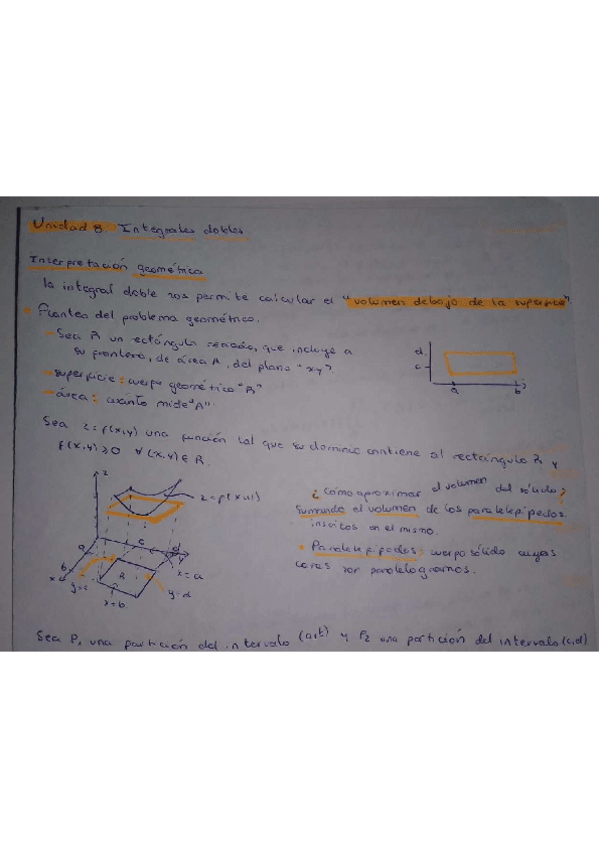 Unidad 8: Integrales dobles
Interpretación geométrica
la integral doble nos permite calcular el "volumen debajo de la superficie".
Planteo del problema geométrico.
Sea R un rectángulo cerrado, que incluye a
su frontera, de área A, del plano "xy".
superficie: cuerpo geométrico "R"
área: cuánto mide "A"
d
c
a
b
Sea z=f(x,y) una función tal que su dominio contiene al rectángulo R y
f(x,y)≥0 ∀(x,y)∈R.
z
z=f(x,y)
¿cómo aproximar el volumen del sólido?
Sumando el volumen de los paralelepípedos
inscritos en el mismo.
Paralelepípedos: cuerpo sólido cuyas
caras son paralelogramos.
a
b
x
c
d
y
R
y=c
x=b
y=d
x=a
Sea P₁ una partición del intervalo (a,b) y P₂ una partición del intervalo (c,d)